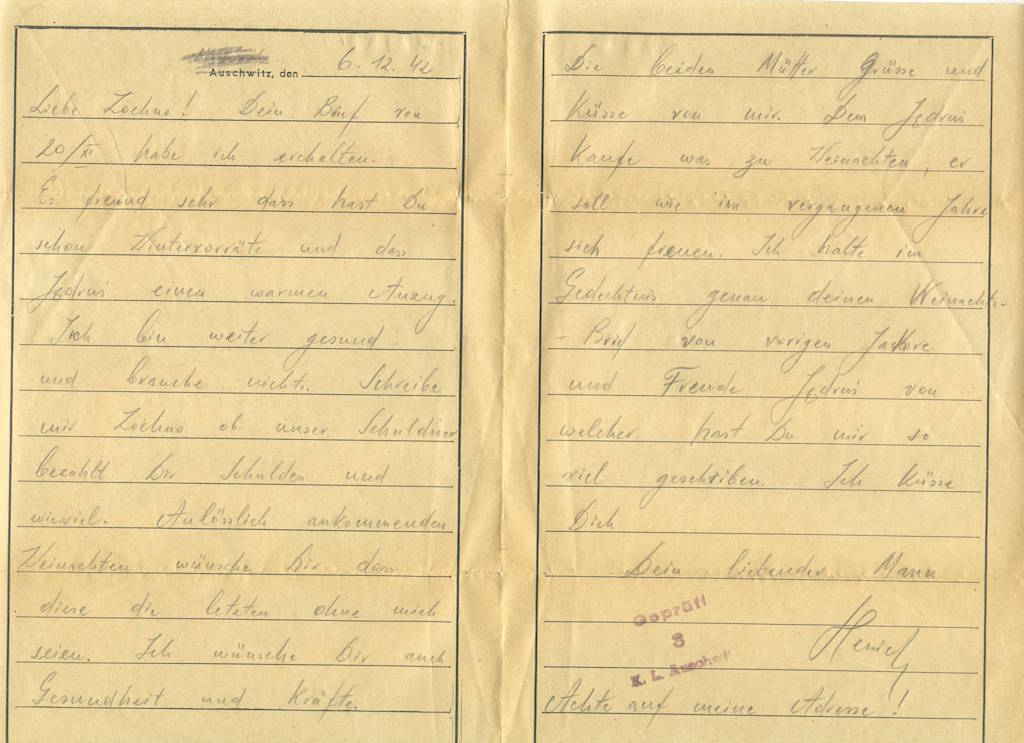 Auschwitz, den 6.12.42
Liebe Zochno! Dein Brief von
20/XI habe ich erhalten.
Es freund sehr dass hast Du
schon Wintervorräte und dass
Jędruś einen warmen Anzug.
Ich bin weiter gesund
und brauche nichts. Schreibe
mir Zochno ob unser Schuldner
bezahlt Dir Schulden und
wieviel. Anlösslich ankommenden
Weinachten wünsche Dir dass
diese die letzten ohne mich
seien. Ich wünsche Dir auch
Gesundheit und Kräfte.
Die beiden Mütter Grüsse und
Küsse von mir. Dem Jędruś
Kaufe was zu Weinachten, er
soll wie im vergangenen Jahre
sich freuen. Ich halte im
Gedechtnis genau deinen Weinachts-
- Brief von vorigen Jahre
und Freude Jędruś von
welcher hast Du mir so
viel geschriben. Ich Küsse
Dich
Dein liebender Mann
Geprüft
3
K. L. Auschwitz
Achte auf meine Adresse!